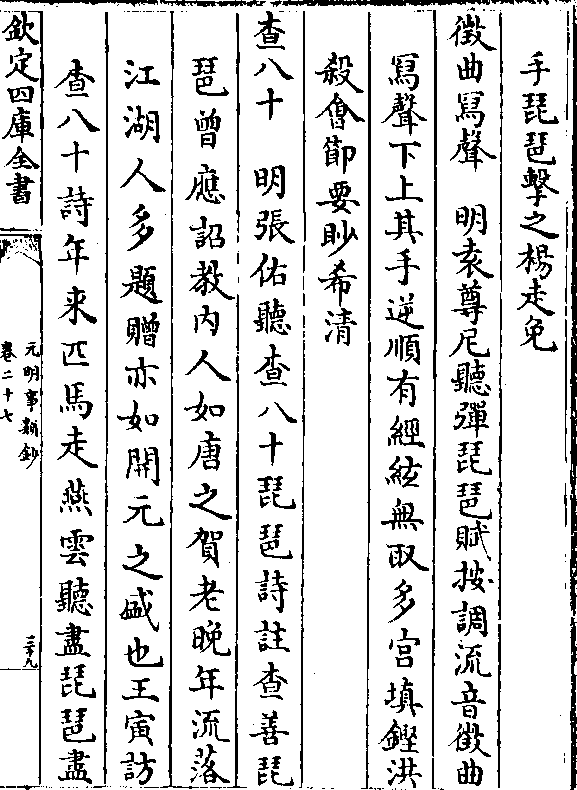 手琵琶擊之楊走免
徵曲寫聲　明袁尊尼聽彈琵琶賦按調流音徵曲
寫聲下上其手逆順有經絃無取多宮填鏗洪
殺會節要眇希清
查八十　明張佑聽查八十琵琶詩註查善琵
琶曾應詔教內人如唐之賀老晚年流落
江湖人多題贈亦如開元之盛也王寅訪
查八十詩年来匹馬走燕雲聽盡琵琶盡
欽定四庫全書
元明事類鈔
卷二十七
三十九